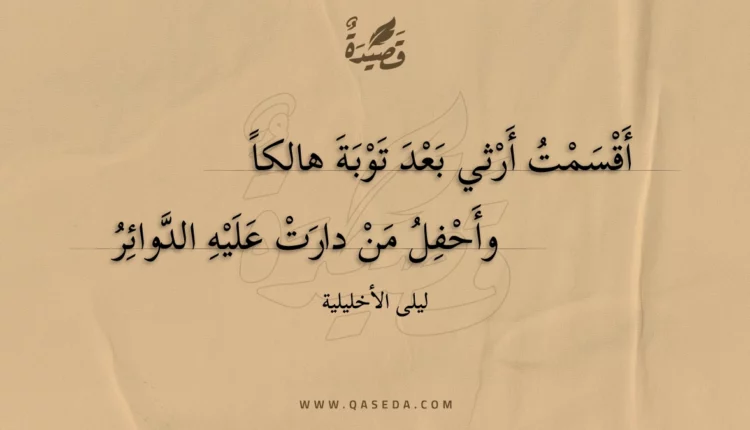 قَصِيدَةٌ
أَقْسَمْتُ أَرْثي بَعْدَ تَوْبَةَ هالكاً
وأَحْفِلُ مَنْ دارَتْ عَلَيْهِ الدَّوائِرُ
ليلى الأخليلية
WWW.QASEDA.COM